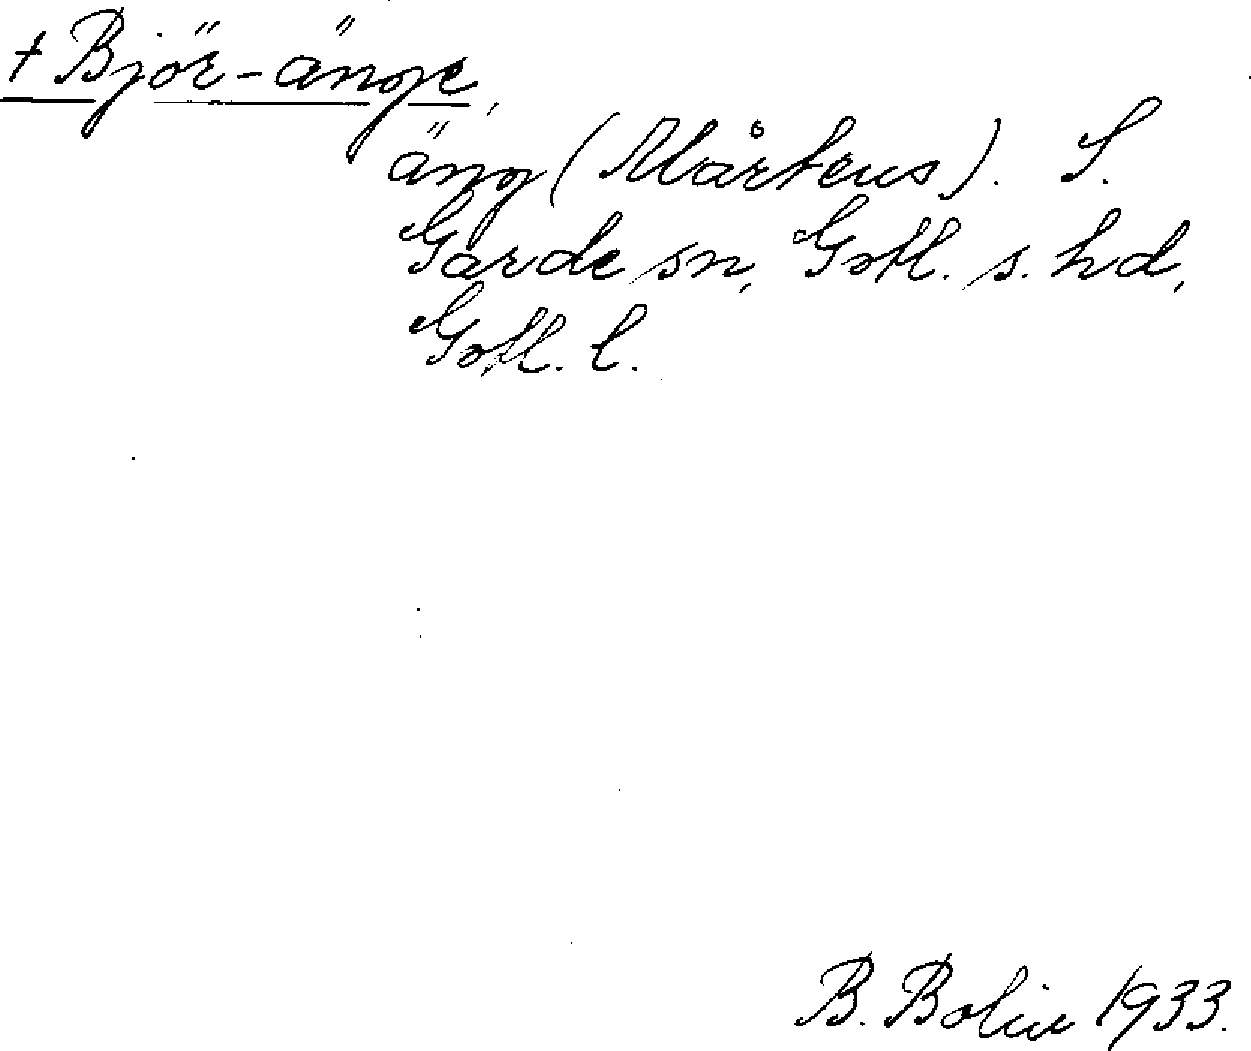 † Björ-änge,
äng (Mårtens). S.
Garde sn, Gotl. s. hd,
Gotl. l.
B. Bolin 1933.